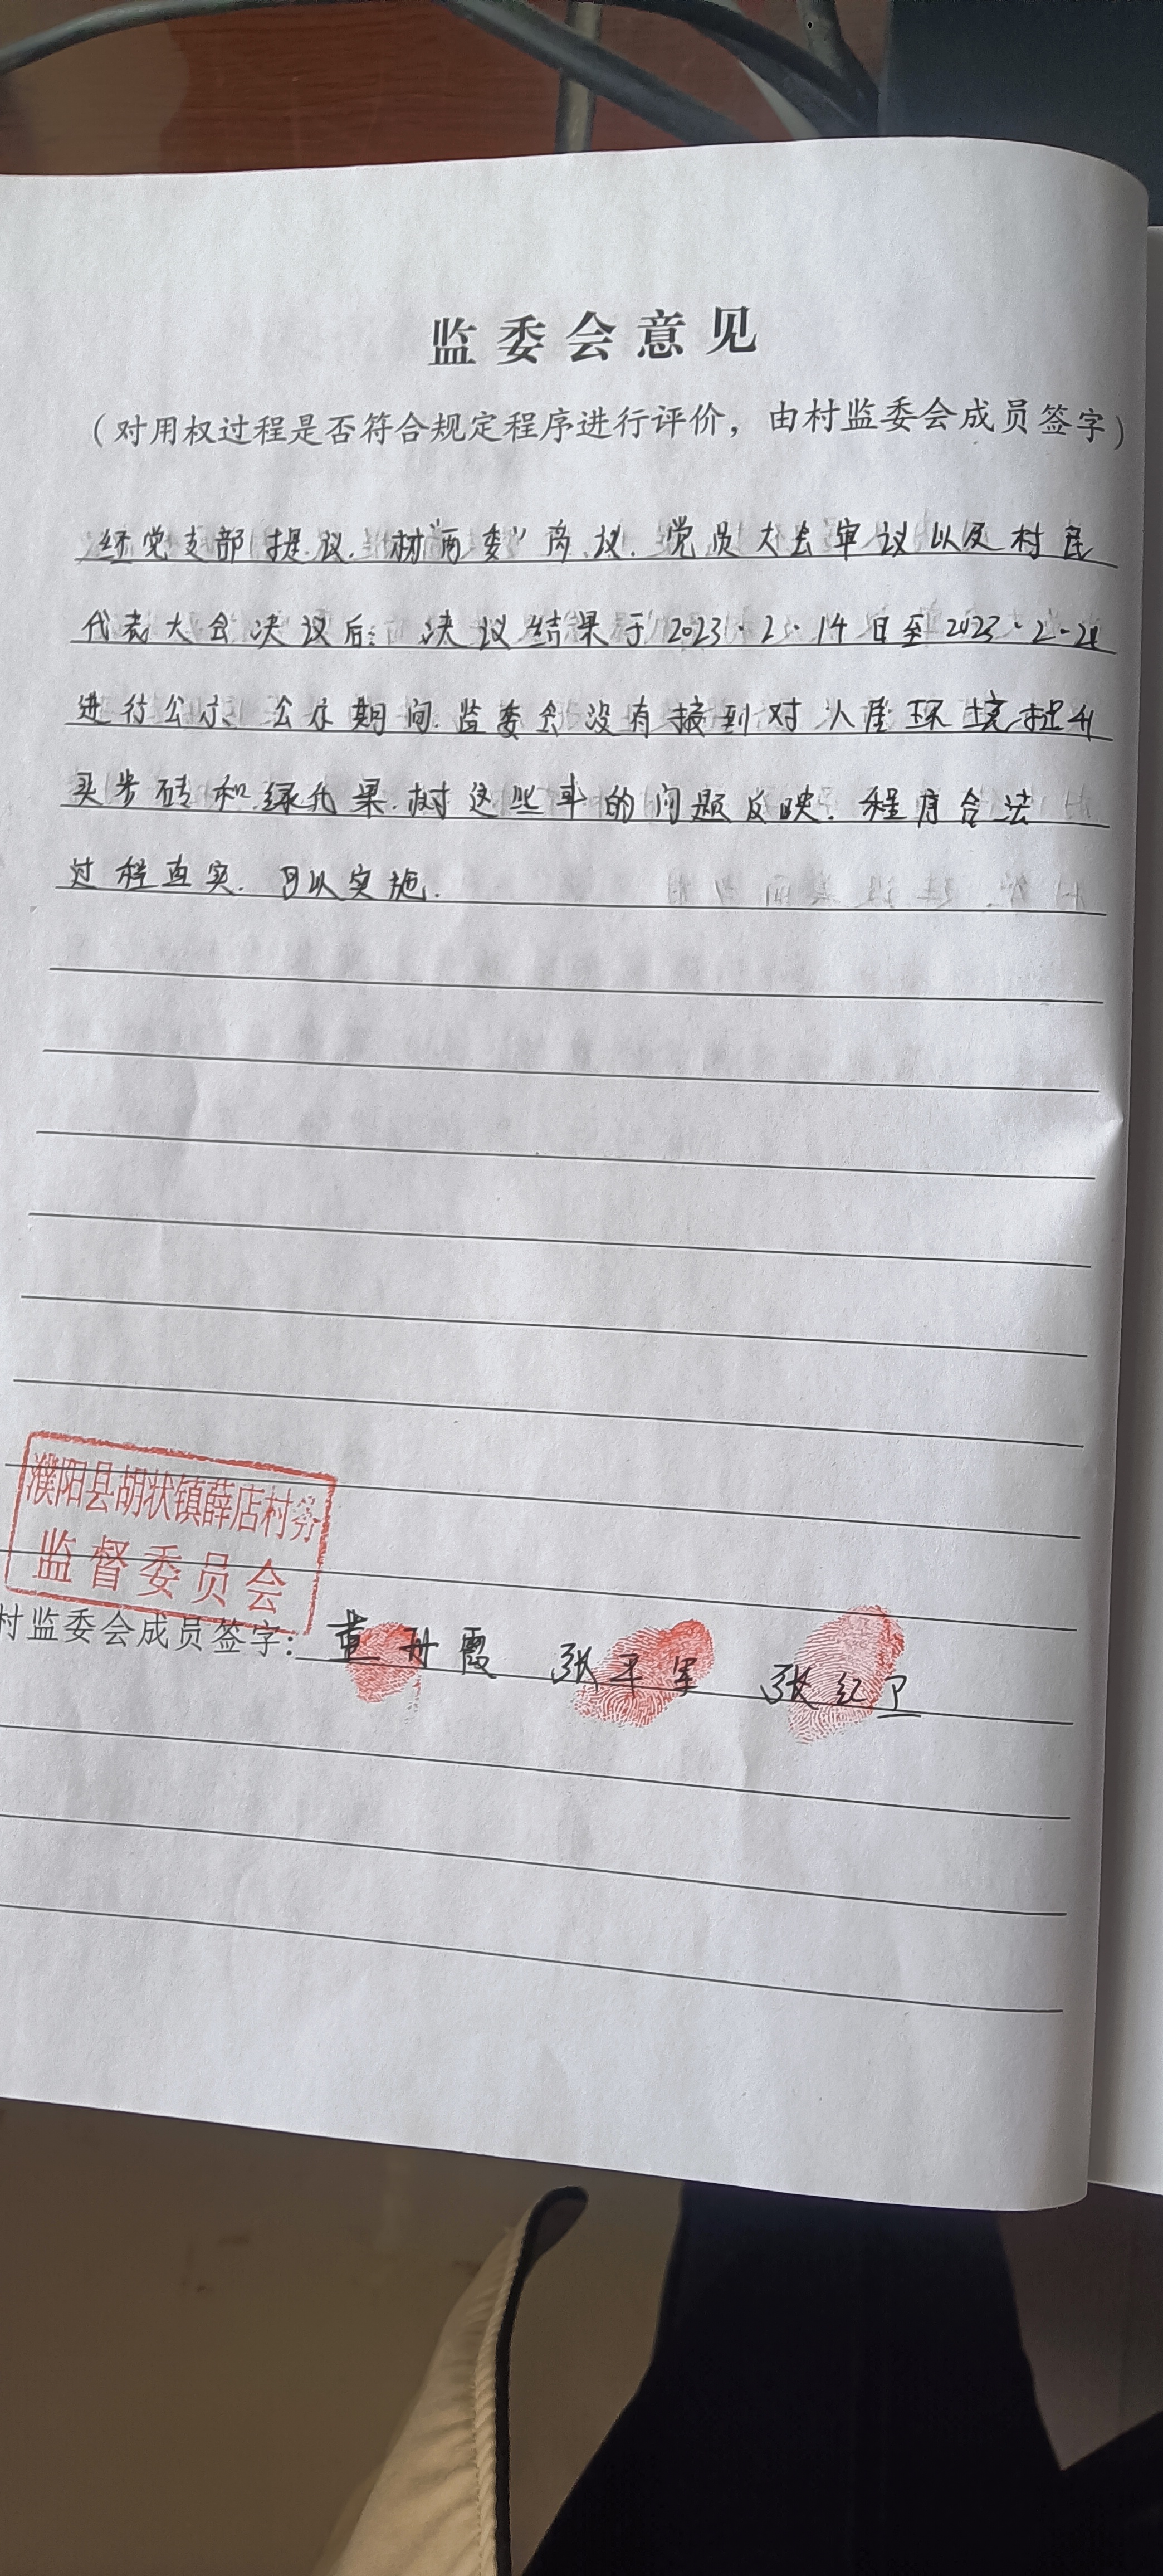 监委会意见
（对用权过程是否符合规定程序进行评价，由村监委会成员签字）
经党支部提议.村"两委"商议.党员大会审议以及村民
代表大会决议后：决议结果于2023.2.14日至2023.2-20
进行公示、公示期间.监委会没有接到对人居环境提升
买步砖和绿化果.树这些事的问题反映.程序合法
过程真实.可以实施.
濮阳县胡状镇薛店村务
监督委员会
村监委会成员签字：董丹霞 张平军 张纪卫